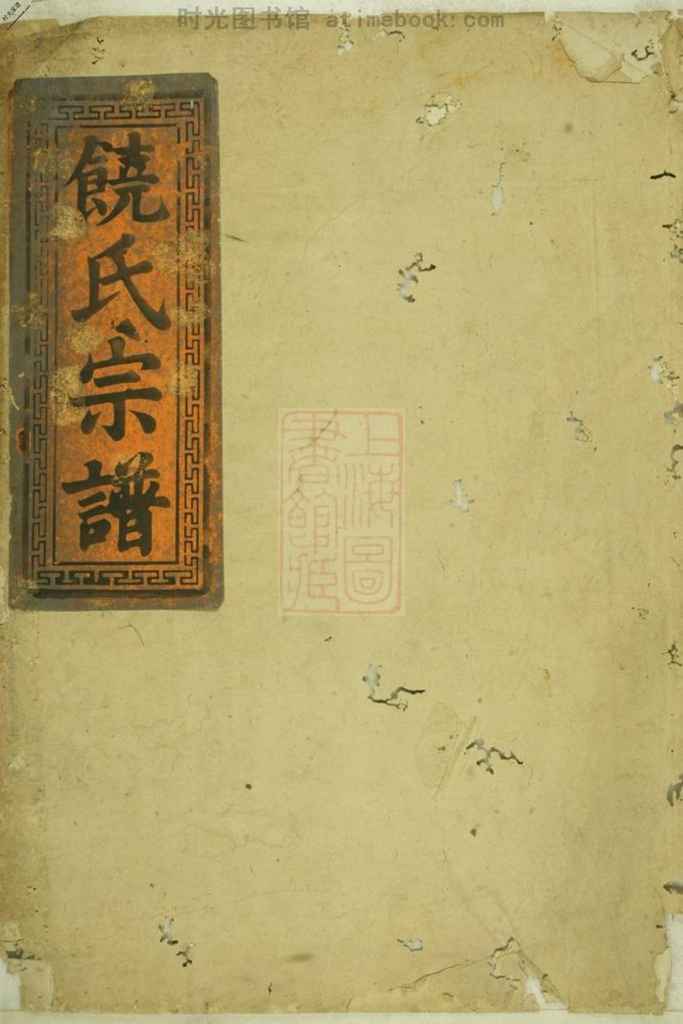 时光图书馆 atimebook.com
饒氏宗譜
上海圖
書館藏